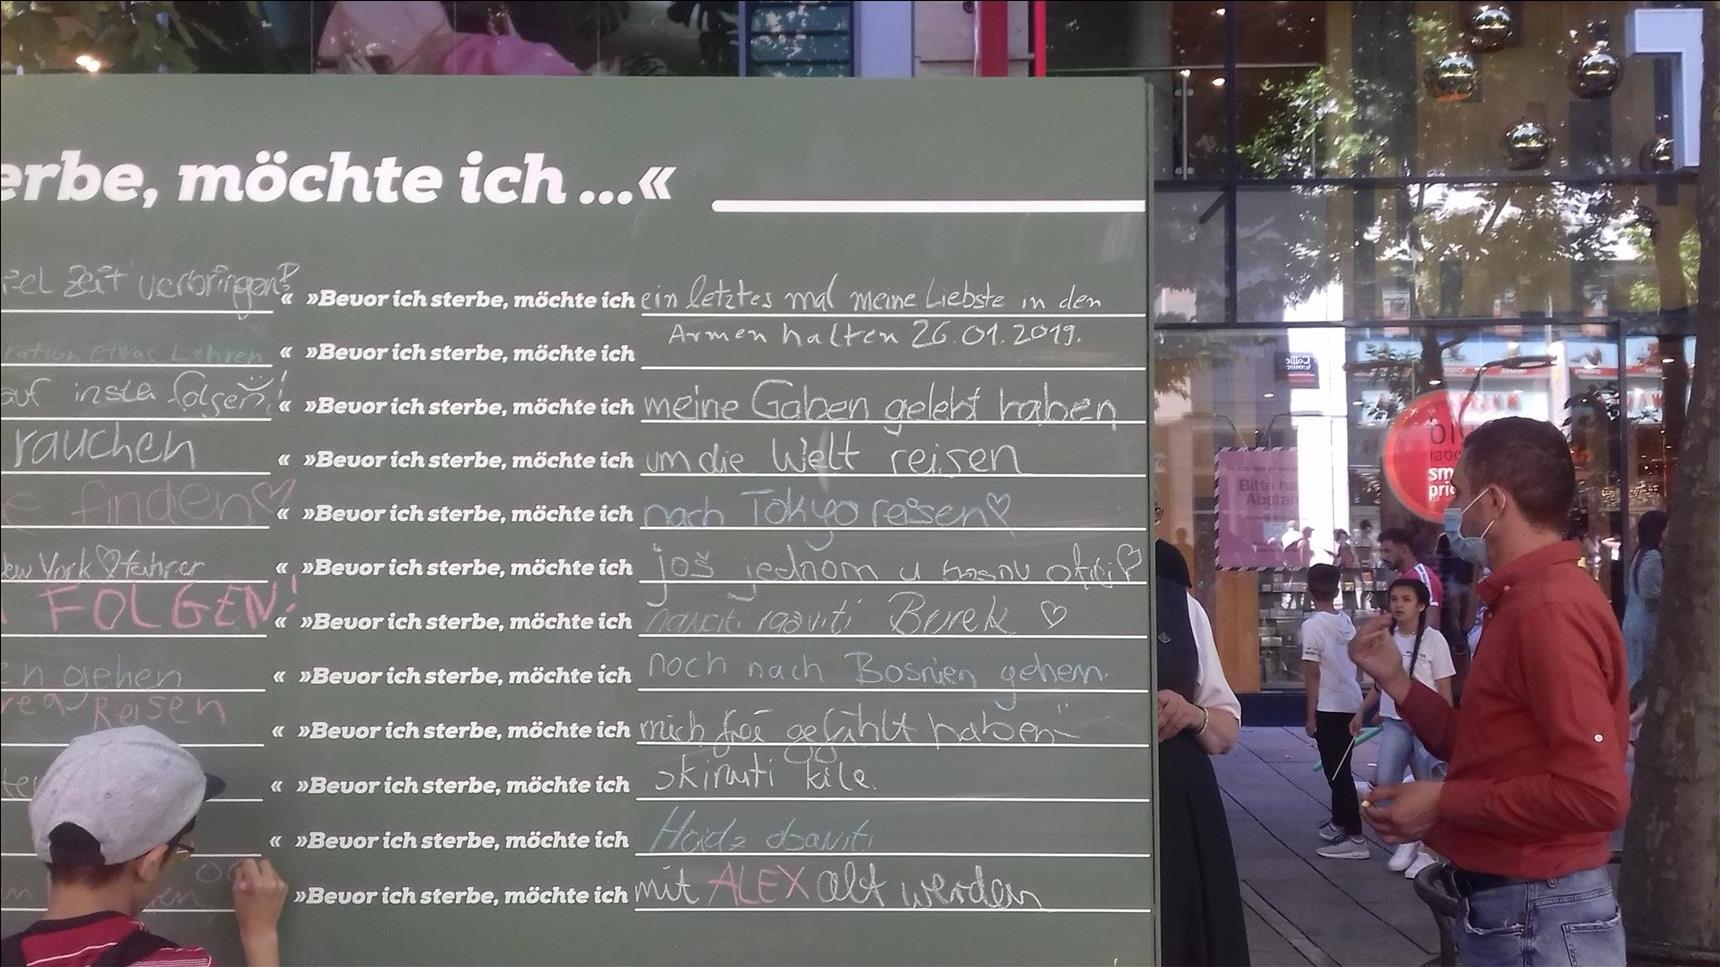 erbe, möchte ich ...«
iel Zeit verbringen? « »Bevor ich sterbe, möchte ich ein letztes mal meine Liebste in den
Armen halten 26.01.2019.
etwas Lehren « »Bevor ich sterbe, möchte ich
auf insta folgen! « »Bevor ich sterbe, möchte ich meine Gaben gelebt haben
rauchen « »Bevor ich sterbe, möchte ich um die Welt reisen
e finden « »Bevor ich sterbe, möchte ich nach Tokyo reisen
ew York fahrer « »Bevor ich sterbe, möchte ich još jednom u bosnu otići
FOLGEN! « »Bevor ich sterbe, möchte ich naučiti praviti Burek
n gehen « »Bevor ich sterbe, möchte ich noch nach Bosnien gehen.
rea Reisen
« »Bevor ich sterbe, möchte ich mich frei gefühlt haben
« »Bevor ich sterbe, möchte ich skinuti kile.
« »Bevor ich sterbe, möchte ich Hadž obaviti
»Bevor ich sterbe, möchte ich mit ALEX alt werden
Bitte ha
Abstan
sm
pric